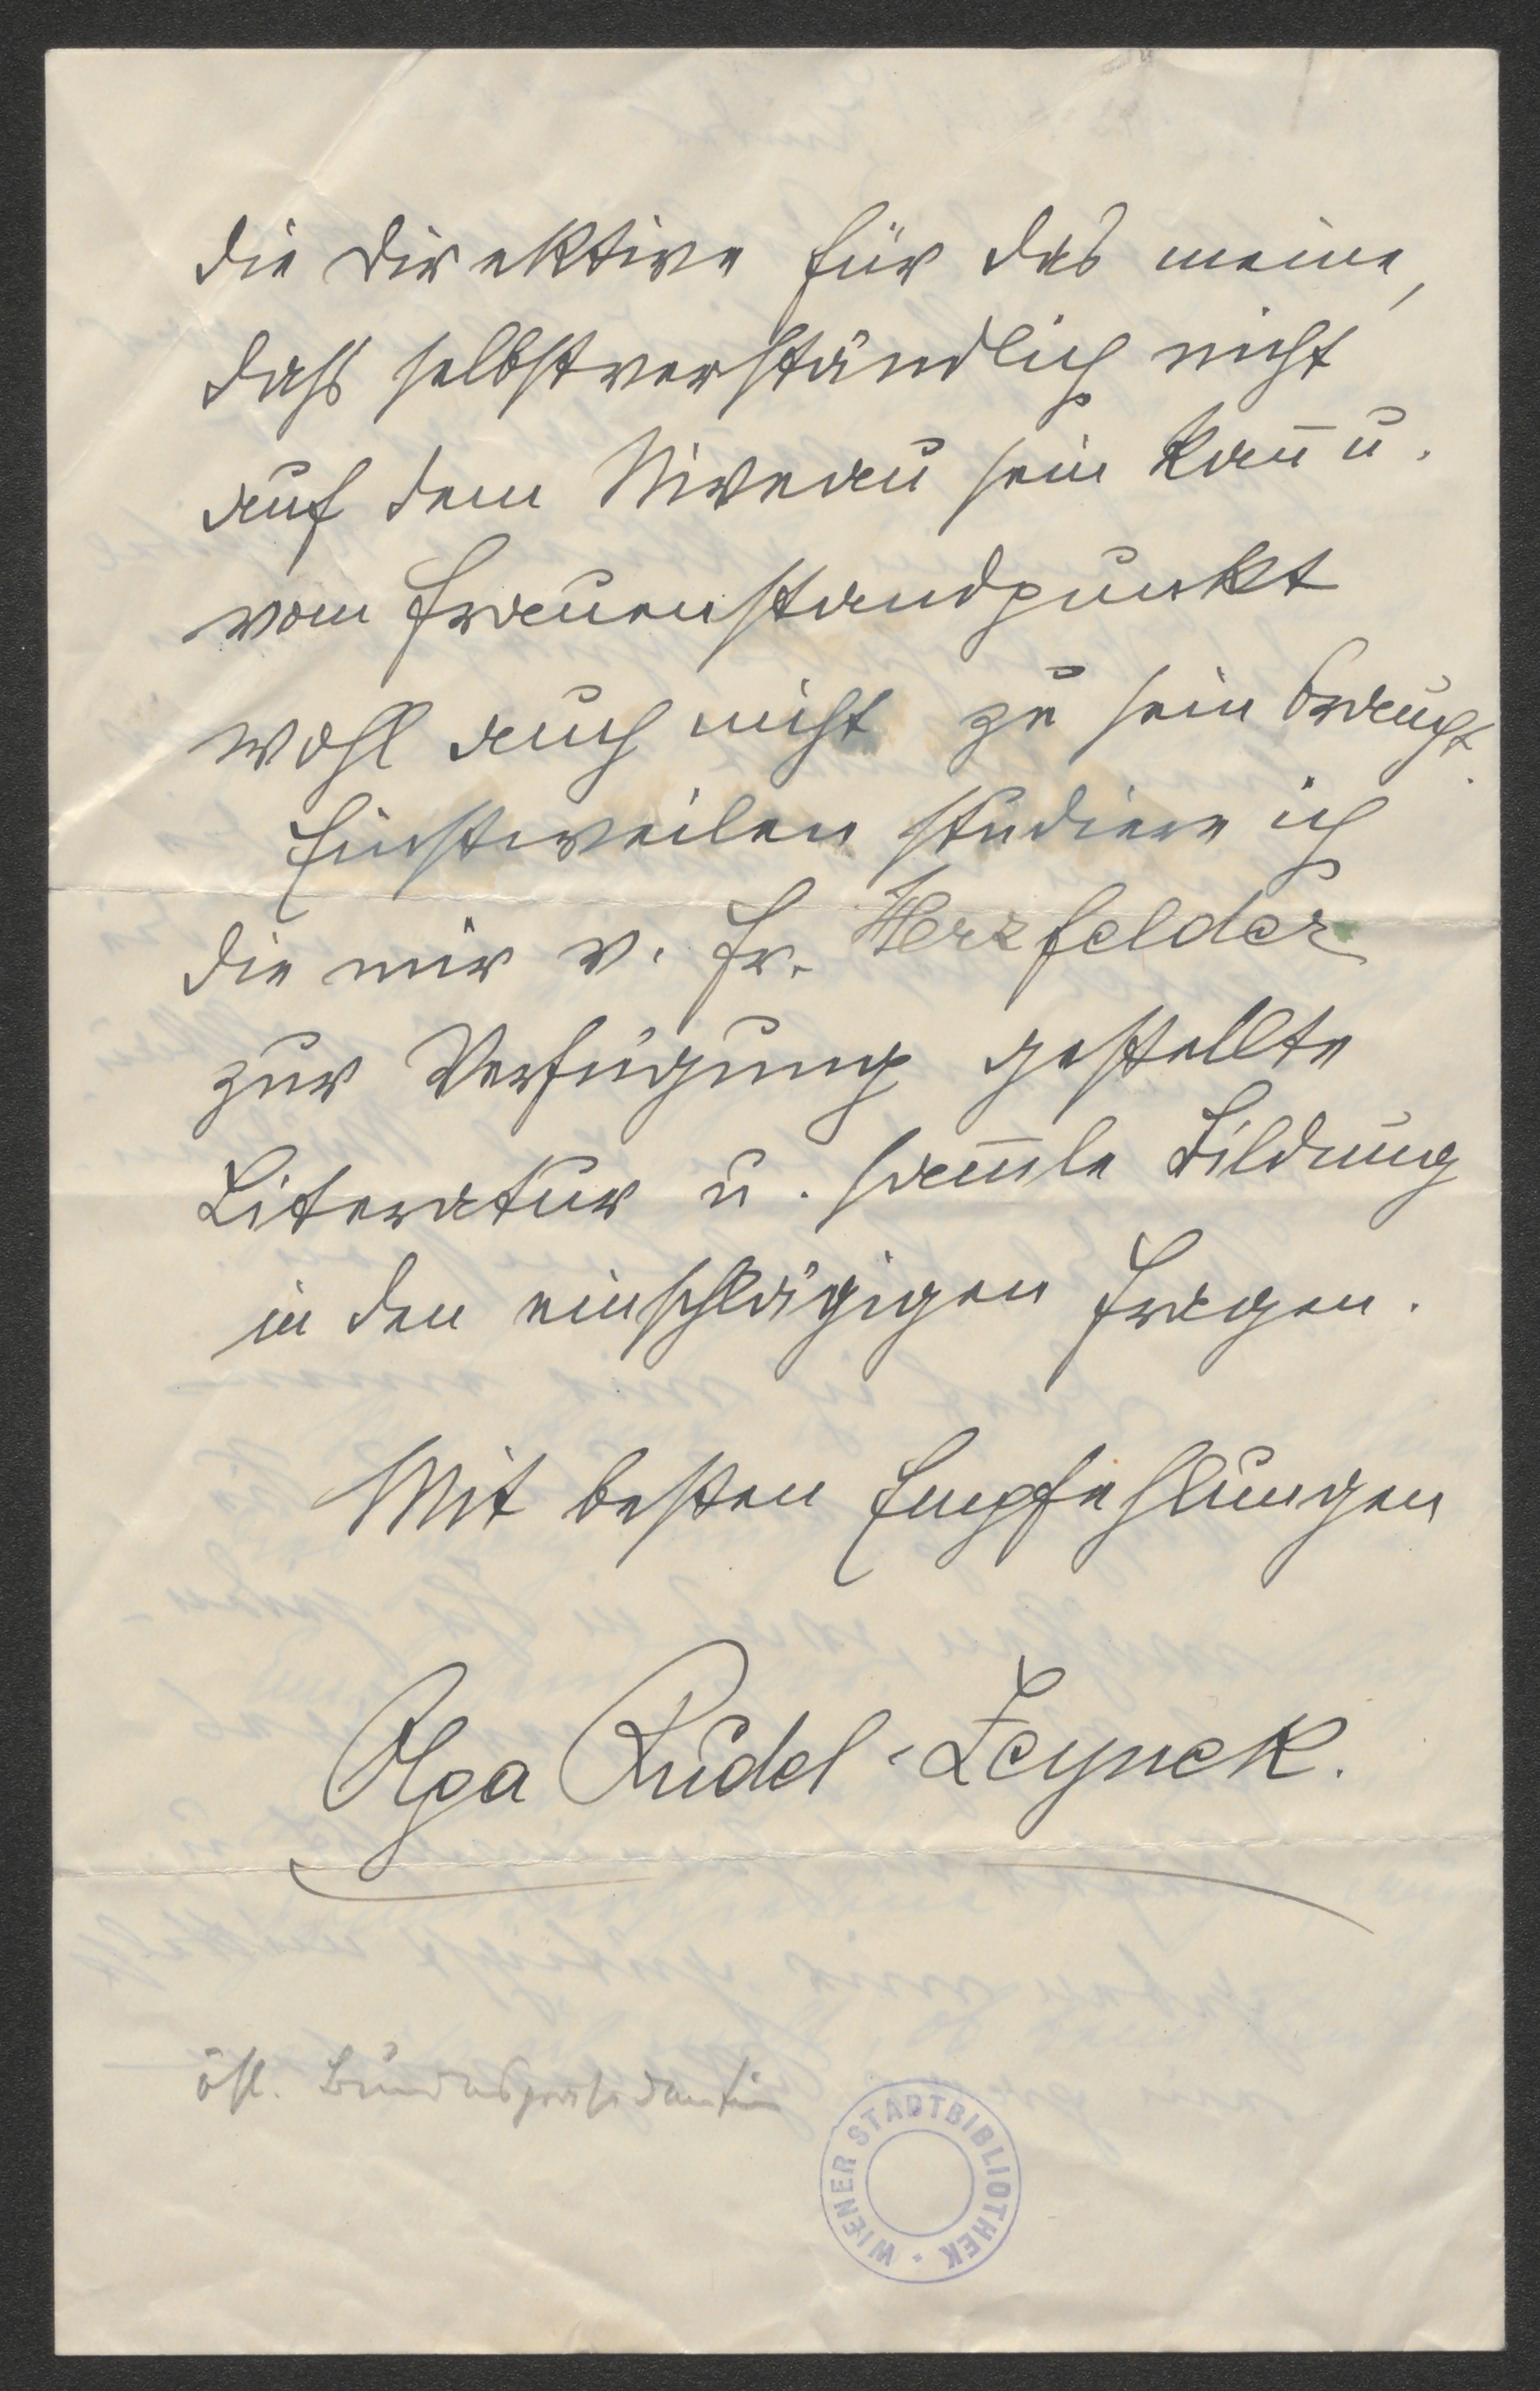 die Direktive für das meine,
dass selbstverständlich nicht
auf dem Niveau sein kan̄ u.
vom Frauenstandpunkt
wohl auch nicht zu sein braucht.
Einstweilen studiere ich
die mir v. Fr. Herzfelder
zur Verfügung gestellte
Literatur u. sam̄le Bildung
in den einschlägigen Fragen.
Mit besten Empfehlungen
Olga Rudel-Zeynek.
öst. Bundespräsidentin
WIENER STADTBIBLIOTHEK